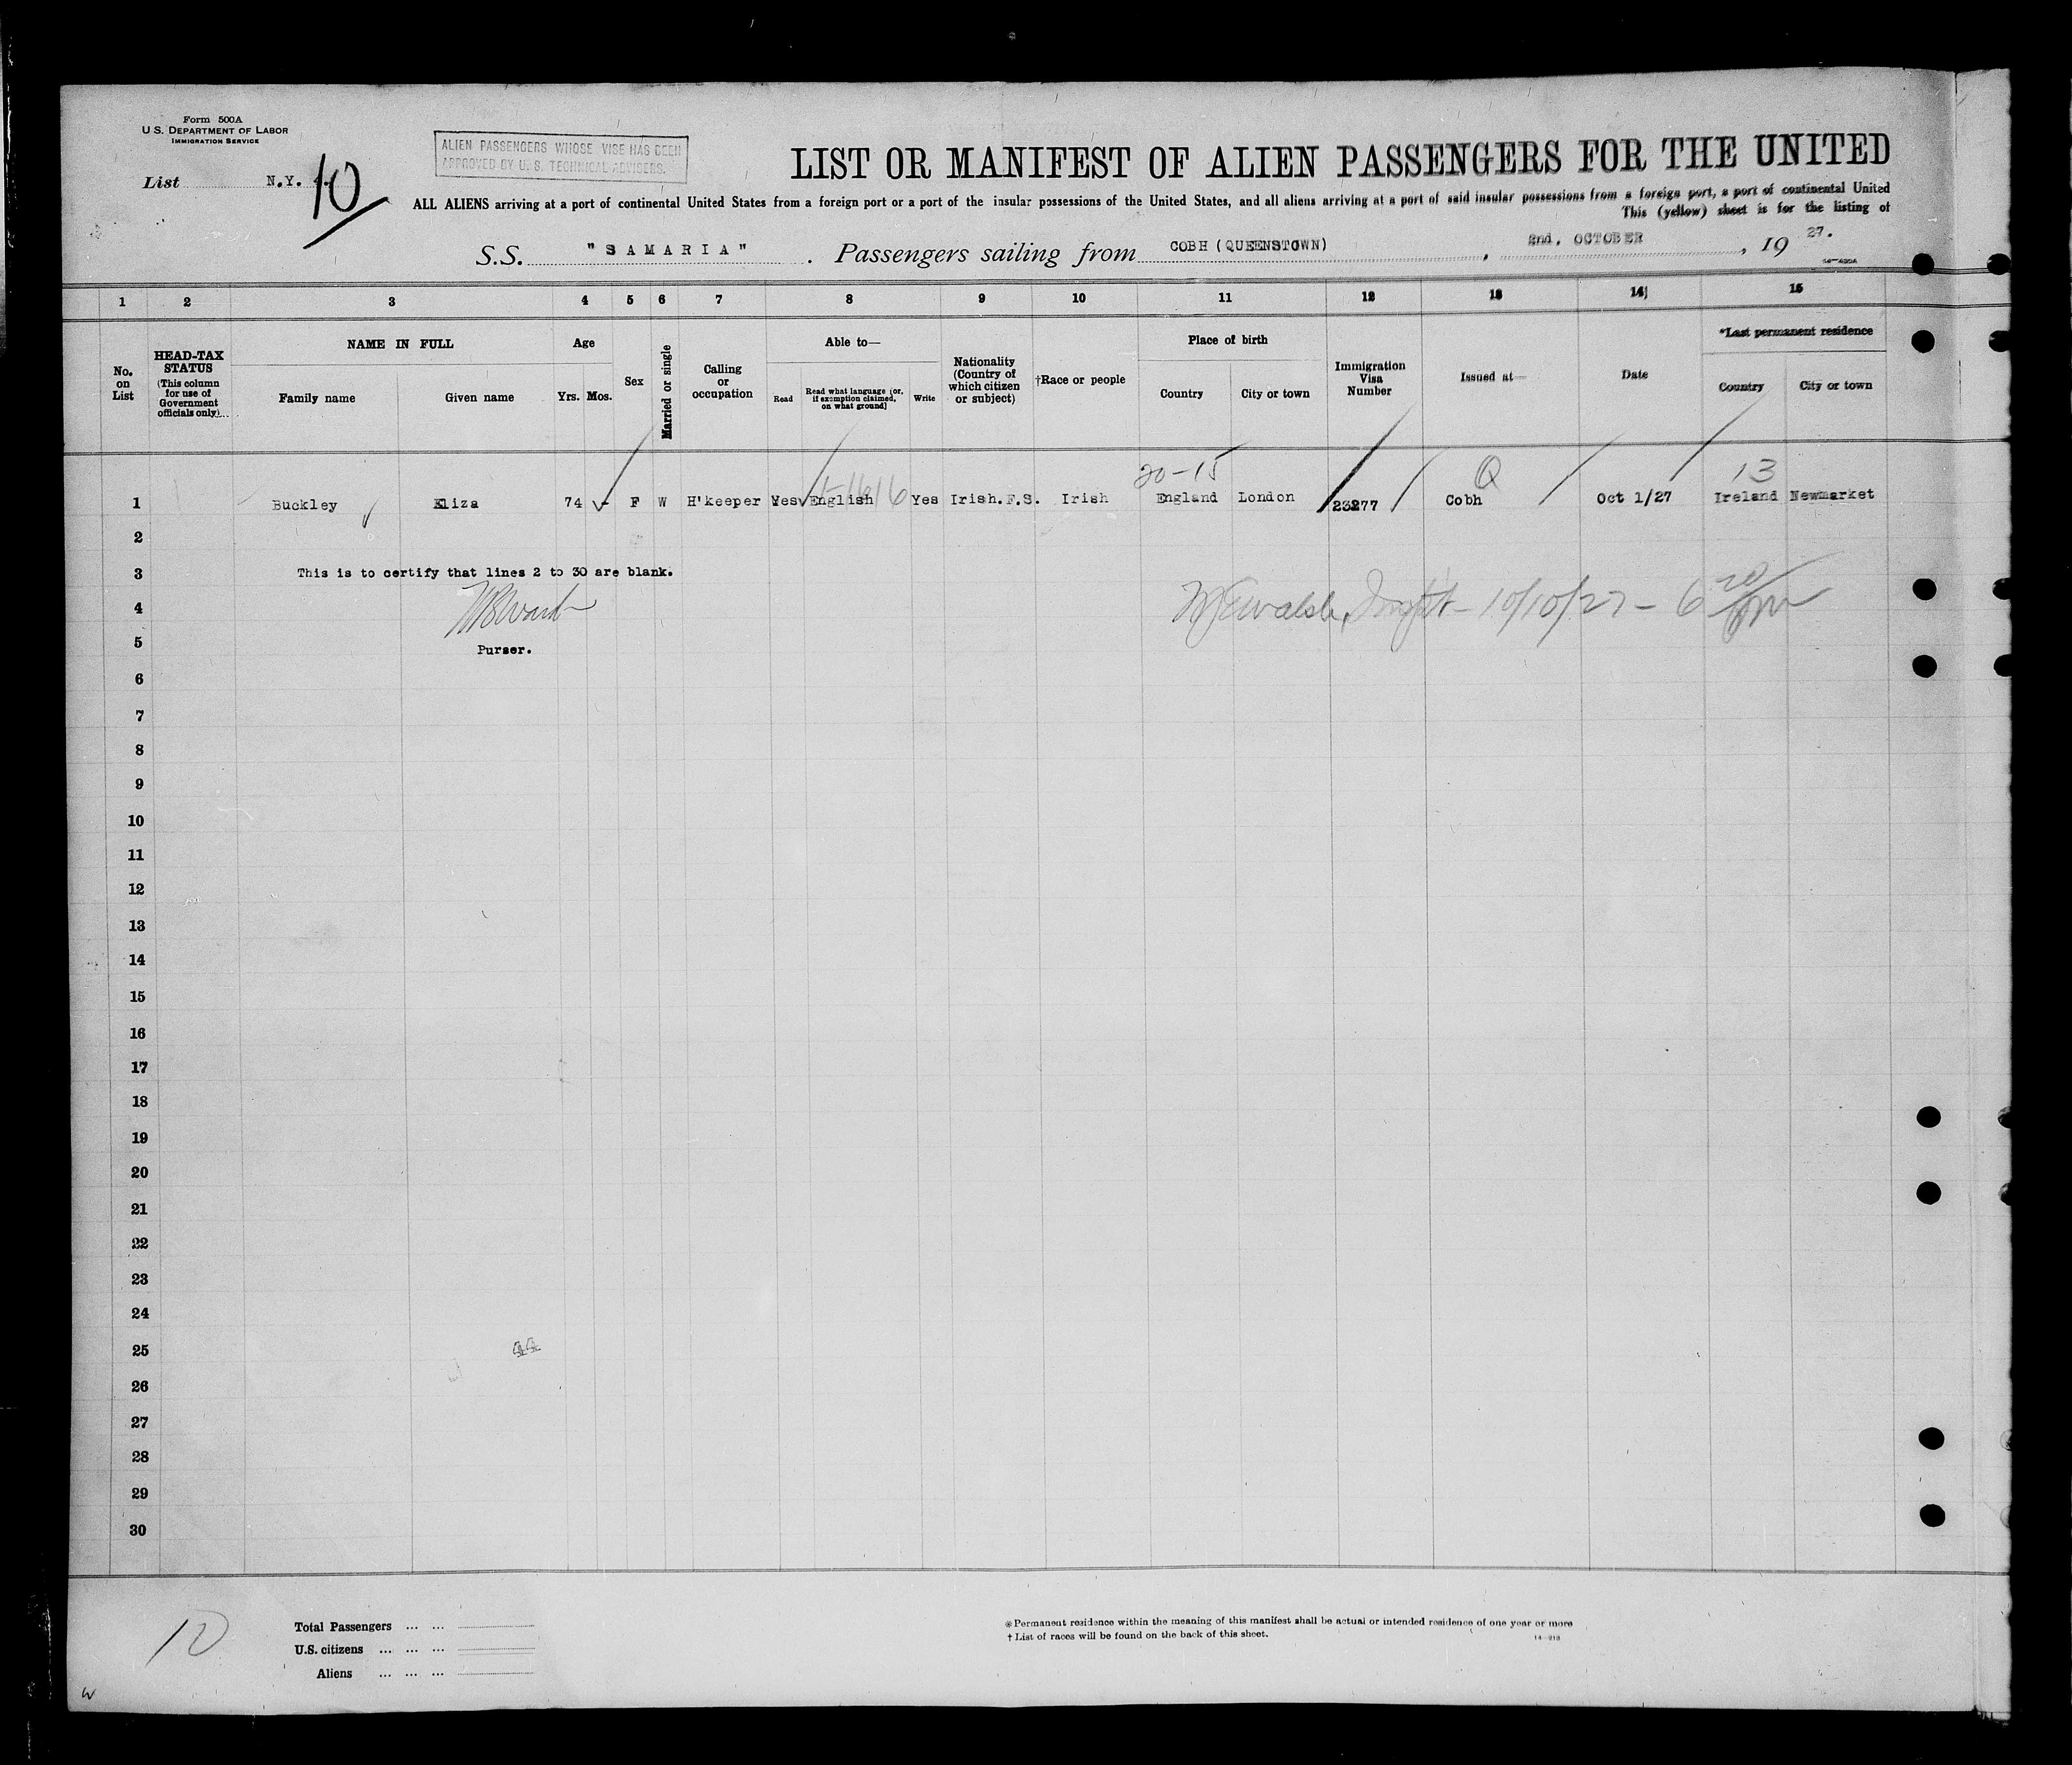 Form 500A
U. S. DEPARTMENT OF LABOR
IMMIGRATION SERVICE
List N.Y. 10
ALIEN PASSENGERS WHOSE VISE HAS BEEN
APPROVED BY U. S. TECHNICAL ADVISERS.
LIST OR MANIFEST OF ALIEN PASSENGERS FOR THE UNITED
ALL ALIENS arriving at a port of continental United States from a foreign port or a port of the insular possessions of the United States, and all aliens arriving at a port of said insular possessions from a foreign port, a port of continental United
This (yellow) sheet is for the listing of
S.S. "SAMARIA" . Passengers sailing from COBH (QUEENSTOWN) , 2nd. OCTOBER , 19 27.
1 2 3 4 5 6 7 8 9 10 11 12 13 14 15
No. on List
HEAD-TAX STATUS (This column for use of Government officials only)
NAME IN FULL
Family name Given name
Age
Yrs. Mos.
Sex
Married or single
Calling or occupation
Able to—
Read
Read what language (or, if exemption claimed, on what ground)
Write
Nationality (Country of which citizen or subject)
†Race or people
Place of birth
Country City or town
Immigration Visa Number
Issued at—
Date
*Last permanent residence
Country City or town
20-15 Q 13
1 Buckley Eliza 74 - F W H'keeper Yes English Yes Irish.F.S. Irish England London 23277 Cobh Oct 1/27 Ireland Newmarket
2
3 This is to certify that lines 2 to 30 are blank.
4 10/10/27 - 6 20/pm
5 Purser.
6
7
8
9
10
11
12
13
14
15
16
17
18
19
20
21
22
23
24
25 44
26
27
28
29
30
10
Total Passengers ... ...
U.S. citizens ... ... ...
Aliens ... ... ...
* Permanent residence within the meaning of this manifest shall be actual or intended residence of one year or more
† List of races will be found on the back of this sheet.
14-213
W